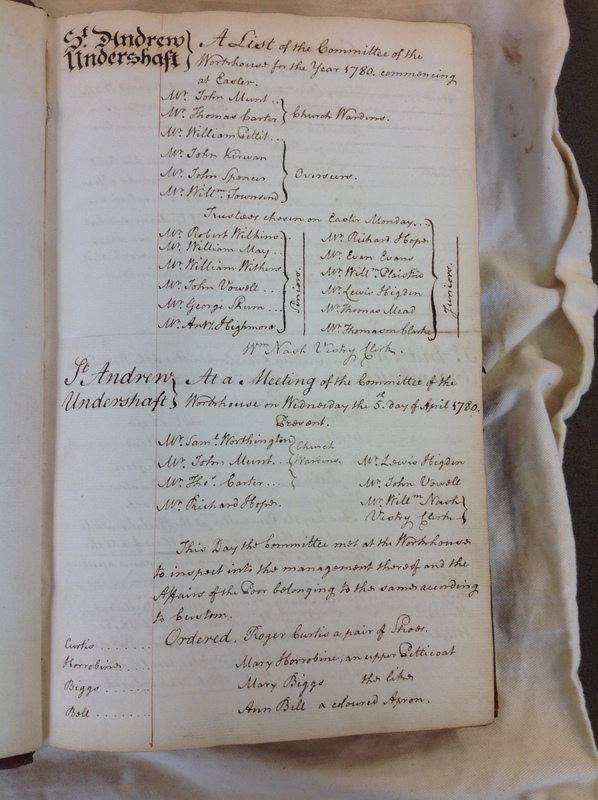 St. Andrew Undershaft } A List of the Committee of the
Workhouse for the Year 1780. commencing
at Easter.
Mr. John Munt ..
Mr. Thomas Carter } Church Wardens.
Mr. William Pettit ..
Mr. John Kirwan
Mr. John Spencer } Overseers.
Mr. Willm. Townsend
Trustees chosen on Easter Monday...
Mr. Robert Wilkins Mr. Richard Hope
Mr. William May .. Mr. Evan Evans
Mr. William Withers Mr. Willm. Plaisted
Mr. John Vowell ... } Seniors. Mr. Lewis Higden } Juniors.
Mr. George Skum ... Mr. Thomas Mead
Mr. Anty. Highmore Mr. Thomason Clarke
Wm. Nash Vestry Clerk.
St. Andrew Undershaft } At a Meeting of the Committee of the
Workhouse on Wednesday the 5th. day of April 1780.
Present.
Mr. Saml. Worthington
Mr. John Munt ... } Church Wardens. Mr. Lewis Higden
Mr. Thos. Carter ... Mr. John Vowell
Mr. Richard Hope. Mr. Willm. Nash
Vestry Clerk }
This Day the Committee met at the Workhouse
to inspect into the management thereof and the
Affairs of the Poor belonging to the same acording
to Custom.
Curtis ....... Ordered. Roger Curtis a pair of Shoes.
Horrobine ..... Mary Horrobine, an upper Petticoat
Biggs ........ Mary Biggs the like
Bell ........ Ann Bell a coloured Apron.